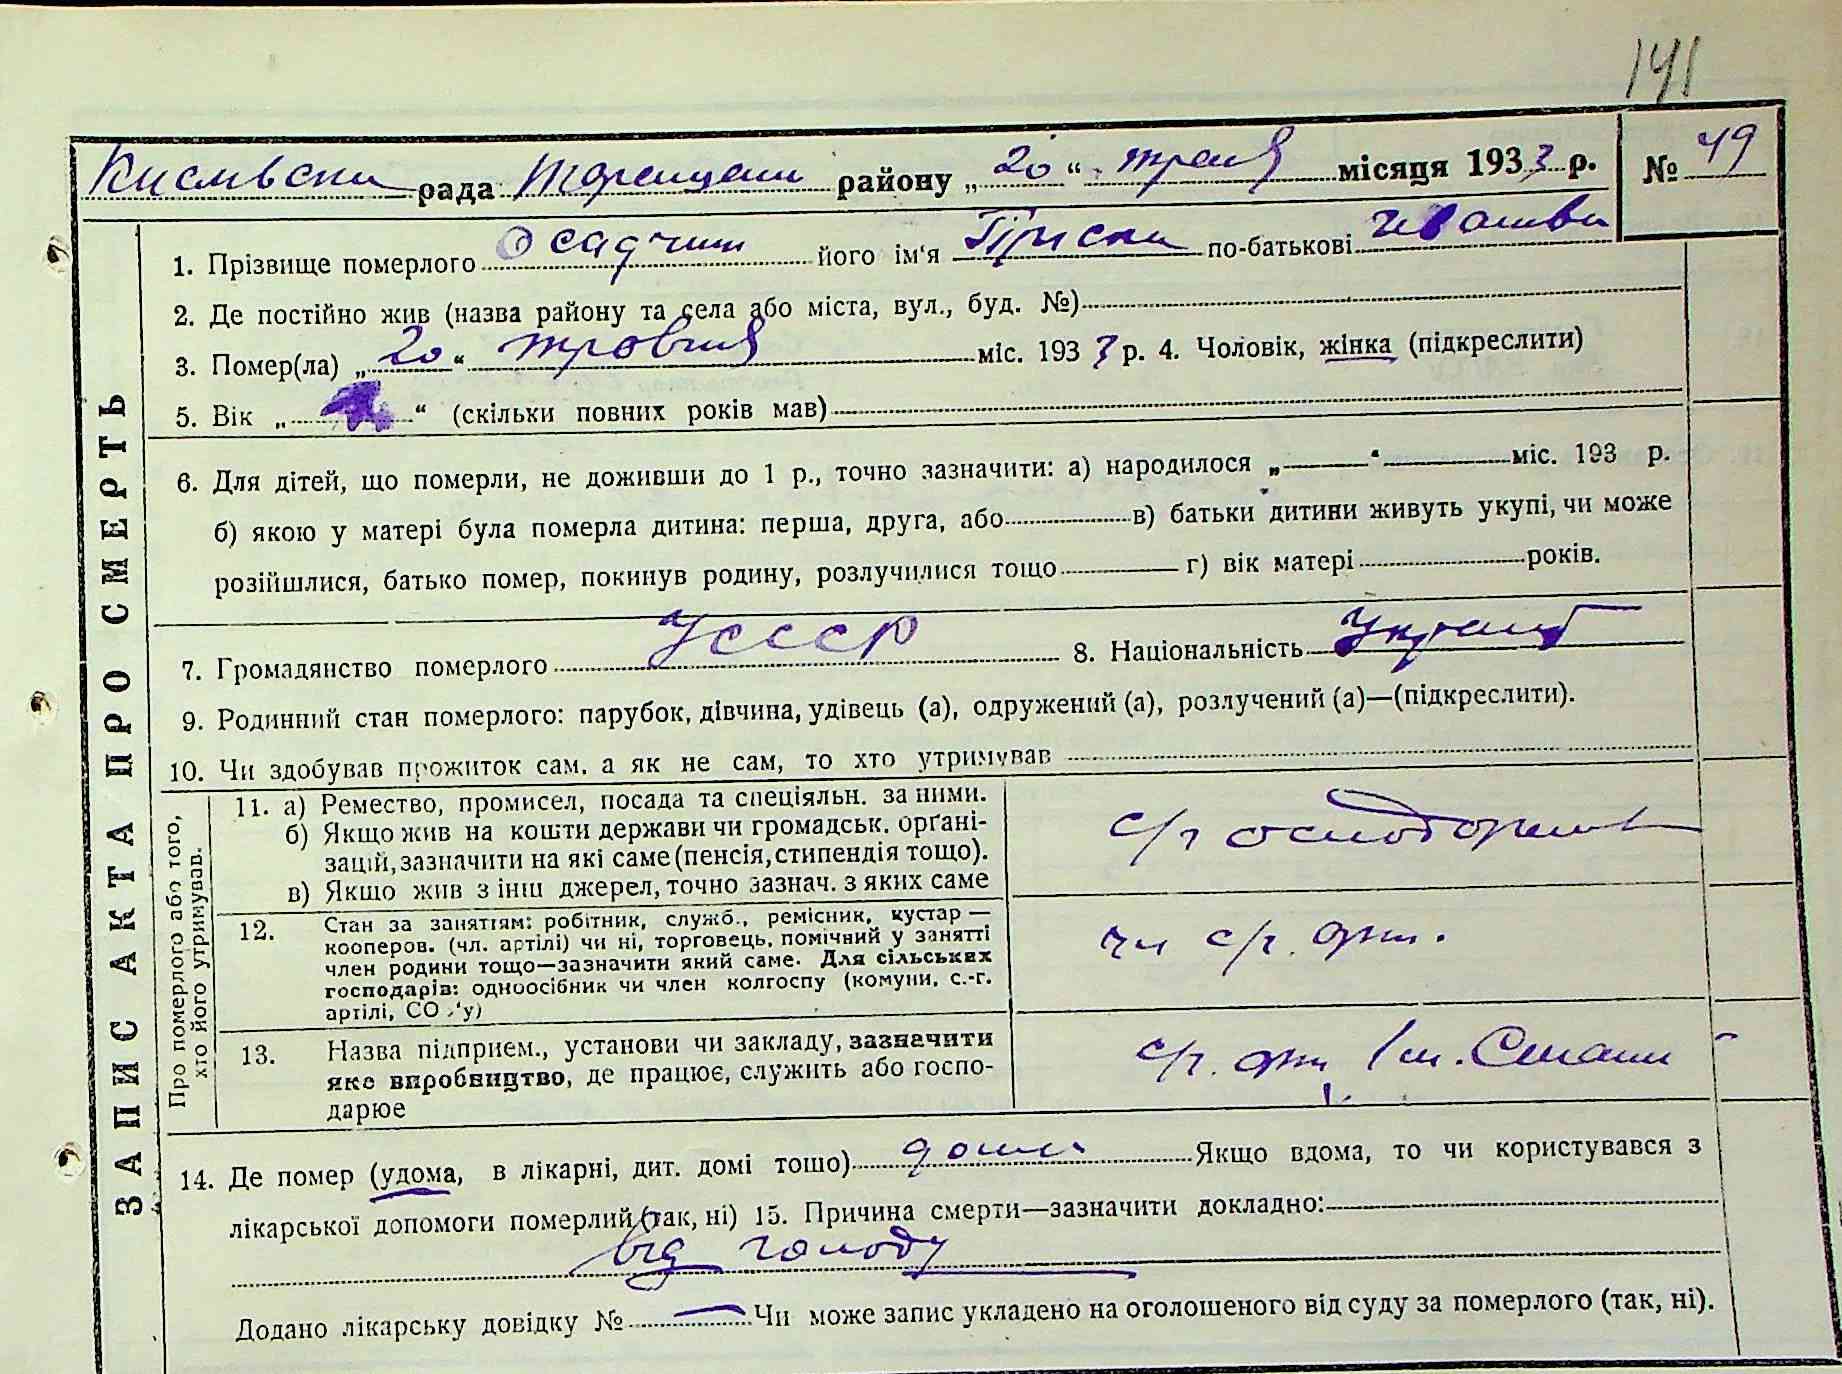 141
рада району „20“ травня місяця 1933 р. № 49
1. Прізвище померлого Осадчий його ім'я по-батькові
2. Де постійно жив (назва району та села або міста, вул., буд. №)
3. Помер(ла) „20“ травня міс. 1933 р. 4. Чоловік, жінка (підкреслити)
5. Вік „ “ (скільки повних років мав)
6. Для дітей, що померли, не доживши до 1 р., точно зазначити: а) народилося „ “ міс. 193 р.
б) якою у матері була померла дитина: перша, друга, або в) батьки дитини живуть укупі, чи може
розійшлися, батько помер, покинув родину, розлучилися тощо г) вік матері років.
7. Громадянство померлого УСССР 8. Національність
9. Родинний стан померлого: парубок, дівчина, удівець (а), одружений (а), розлучений (а)—(підкреслити).
10. Чи здобував прожиток сам, а як не сам, то хто утримував
ЗАПИС АКТА ПРО СМЕРТЬ
Про померлого або того, хто його утримував.
11. а) Ремество, промисел, посада та спеціяльн. за ними.
б) Якщо жив на кошти держави чи громадськ. органі-
зацій, зазначити на які саме (пенсія, стипендія тощо).
в) Якщо жив з інш джерел, точно зазнач. з яких саме
с/г
12. Стан за заняттям: робітник, служб., ремісник, кустар —
кооперов. (чл. артілі) чи ні, торговець, помічний у занятті
член родини тощо—зазначити який саме. Для сільських
господарів: одноосібник чи член колгоспу (комуни, с.-г.
артілі, СО 'у)
с/г. арт.
13. Назва підприєм., установи чи закладу, зазначити
яке виробництво, де працює, служить або госпо-
дарює
с/г. арт
14. Де помер (удома, в лікарні, дит. домі тощо) дома Якщо вдома, то чи користувався з
лікарської допомоги померлий (так, ні) 15. Причина смерти—зазначити докладно:
від голоду
Додано лікарську довідку № — Чи може запис укладено на оголошеного від суду за померлого (так, ні).